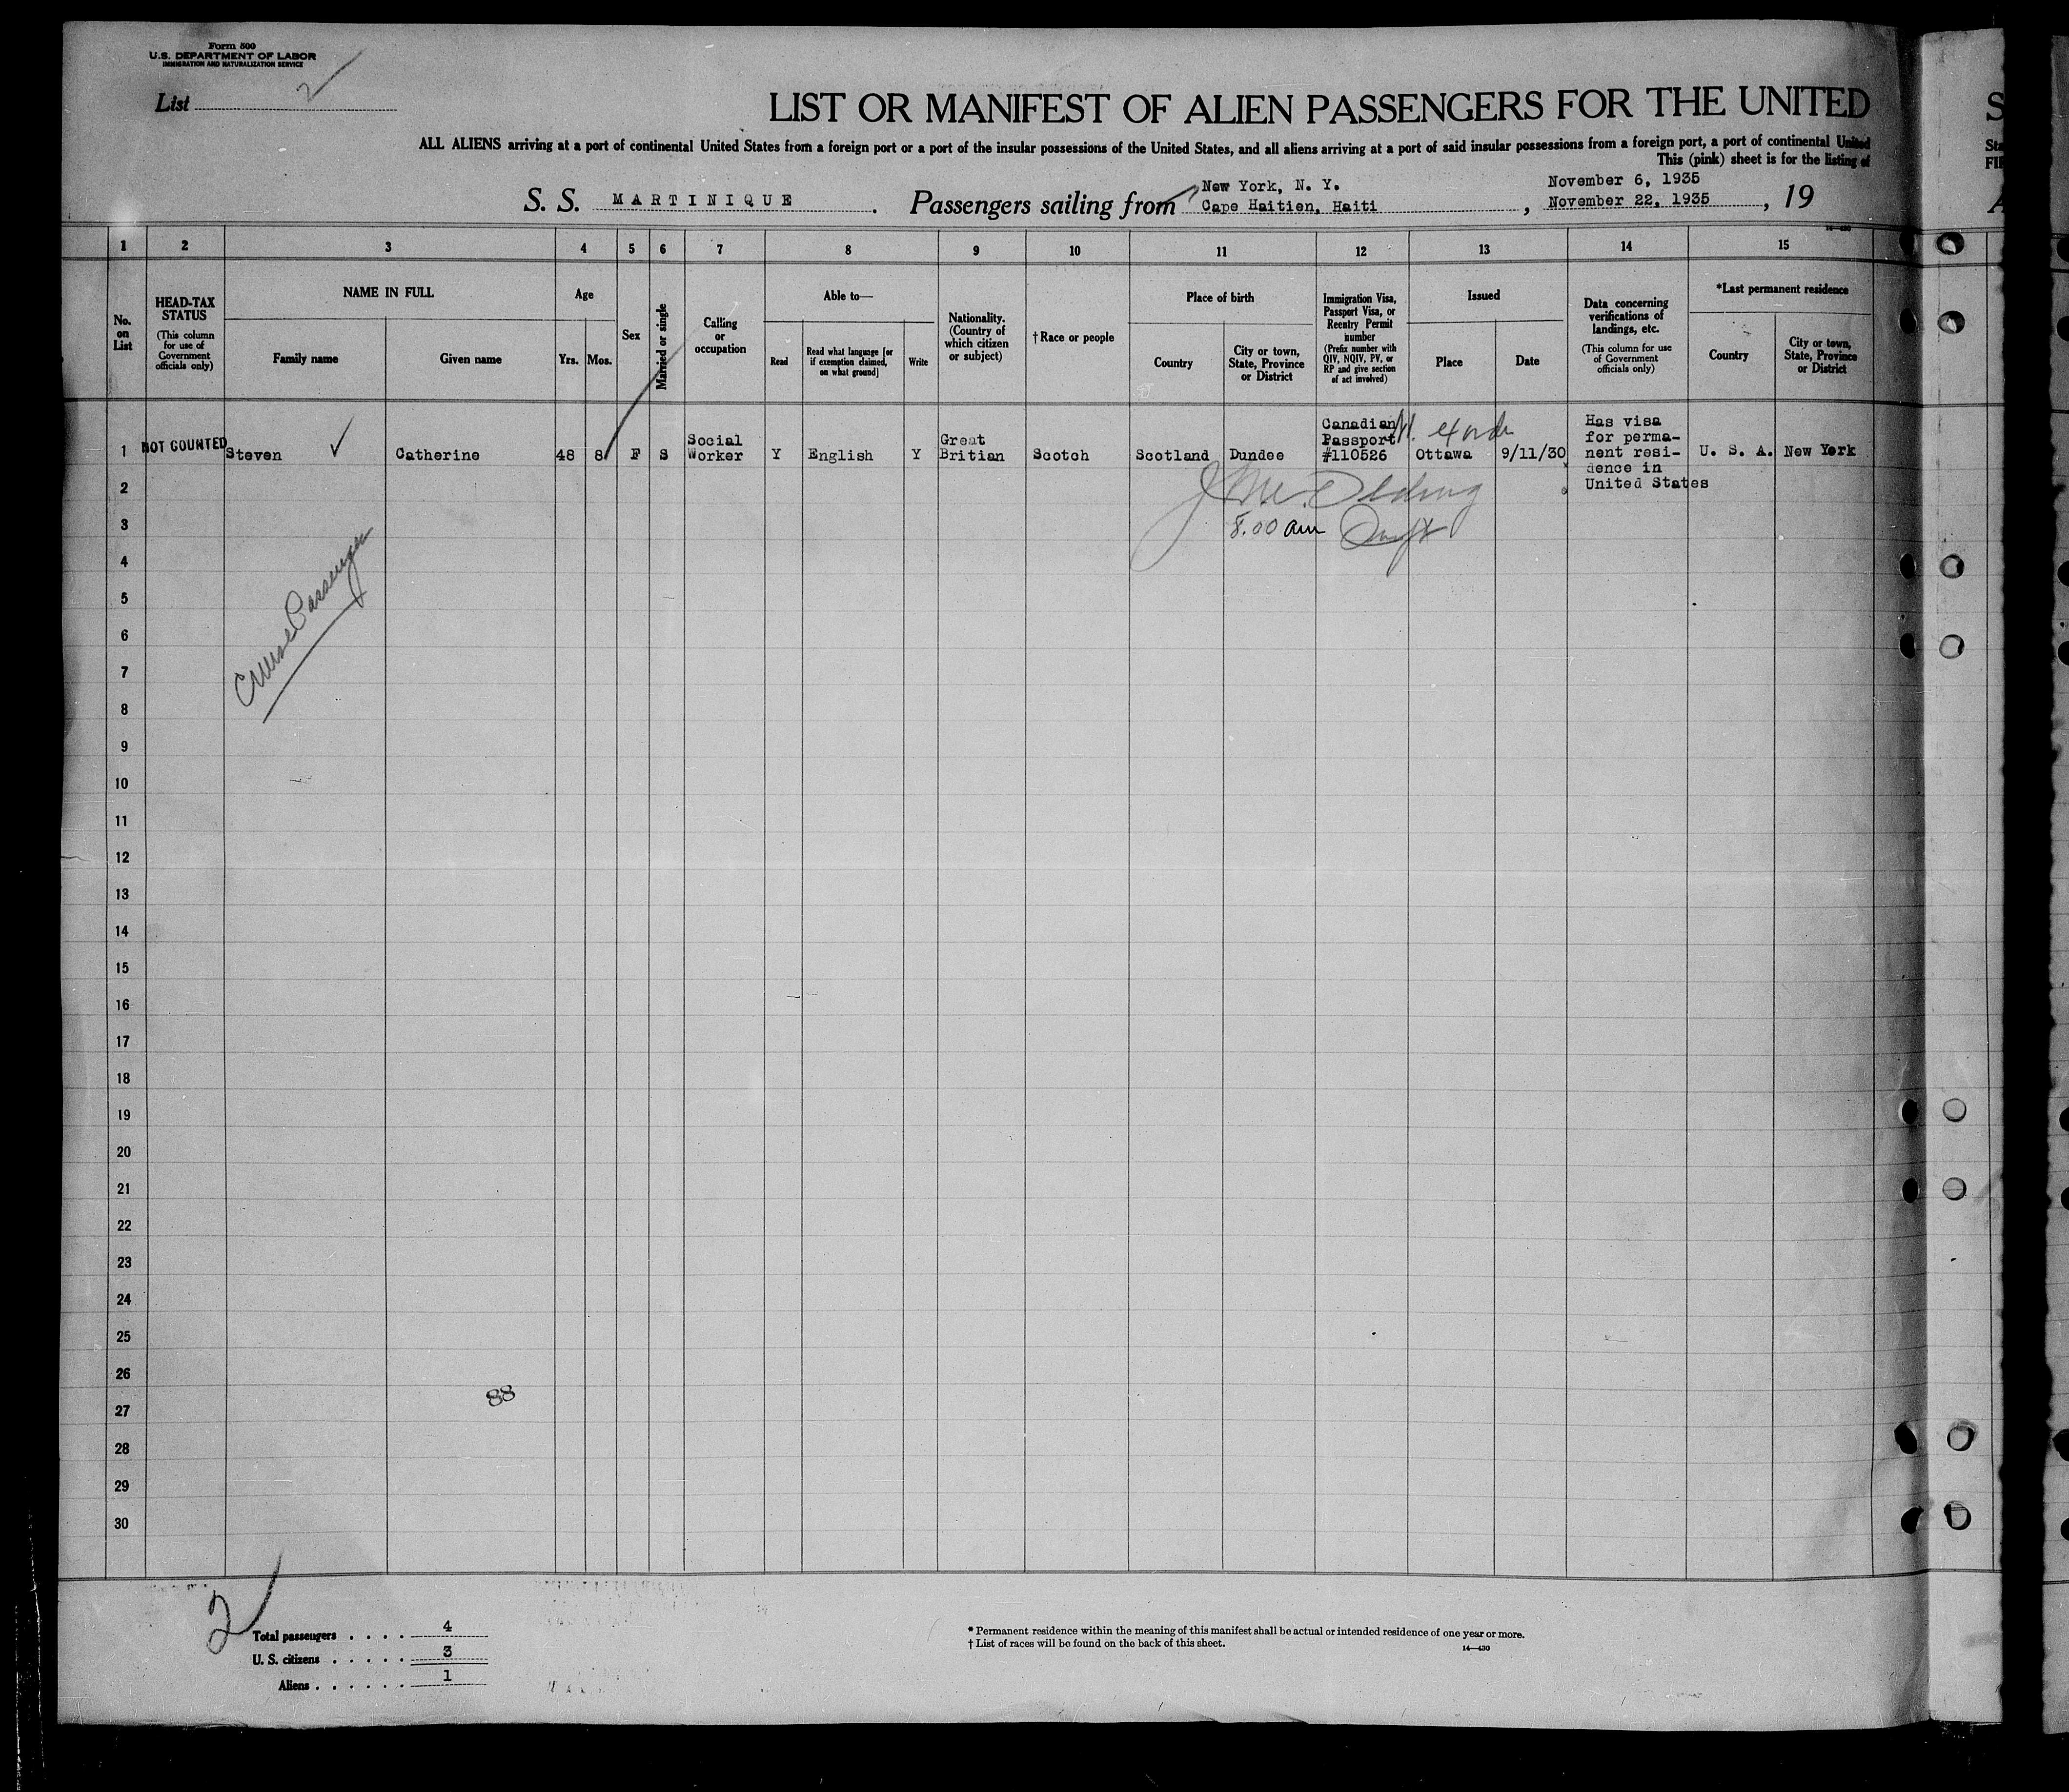 Form 500
U.S. DEPARTMENT OF LABOR
IMMIGRATION AND NATURALIZATION SERVICE
List 2
LIST OR MANIFEST OF ALIEN PASSENGERS FOR THE UNITED
ALL ALIENS arriving at a port of continental United States from a foreign port or a port of the insular possessions of the United States, and all aliens arriving at a port of said insular possessions from a foreign port, a port of continental United
This (pink) sheet is for the listing of
S. S. MARTINIQUE. Passengers sailing from New York, N. Y. November 6, 1935
Cape Haitien, Haiti, November 22, 1935, 19
1 2 3 4 5 6 7 8 9 10 11 12 13 14 15
No. on List
HEAD-TAX STATUS
(This column for use of Government officials only)
NAME IN FULL
Family name
Given name
Age
Yrs.
Mos.
Sex
Married or single
Calling or occupation
Able to—
Read
Read what language [or if exemption claimed, on what ground]
Write
Nationality. (Country of which citizen or subject)
† Race or people
Place of birth
Country
City or town, State, Province or District
Immigration Visa, Passport Visa, or Reentry Permit number
(Prefix number with QIV, NQIV, PV, or RP and give section of act involved)
Issued
Place
Date
Data concerning verifications of landings, etc.
(This column for use of Government officials only)
*Last permanent residence
Country
City or town, State, Province or District
1 NOT COUNTED Steven Catherine 48 8 F S Social Worker Y English Y Great Britian Scotch Scotland Dundee Canadian Passport #110526 Ottawa 9/11/30 Has visa for perma- nent resi- dence in United States U. S. A. New York
2
3 8.00 am
4
Cruise Passenger
5
6
7
8
9
10
11
12
13
14
15
16
17
18
19
20
21
22
23
24
25
26
88
27
28
29
30
2
Total passengers . . . . 4
U. S. citizens . . . . . 3
Aliens . . . . . . 1
* Permanent residence within the meaning of this manifest shall be actual or intended residence of one year or more.
† List of races will be found on the back of this sheet.
14—430